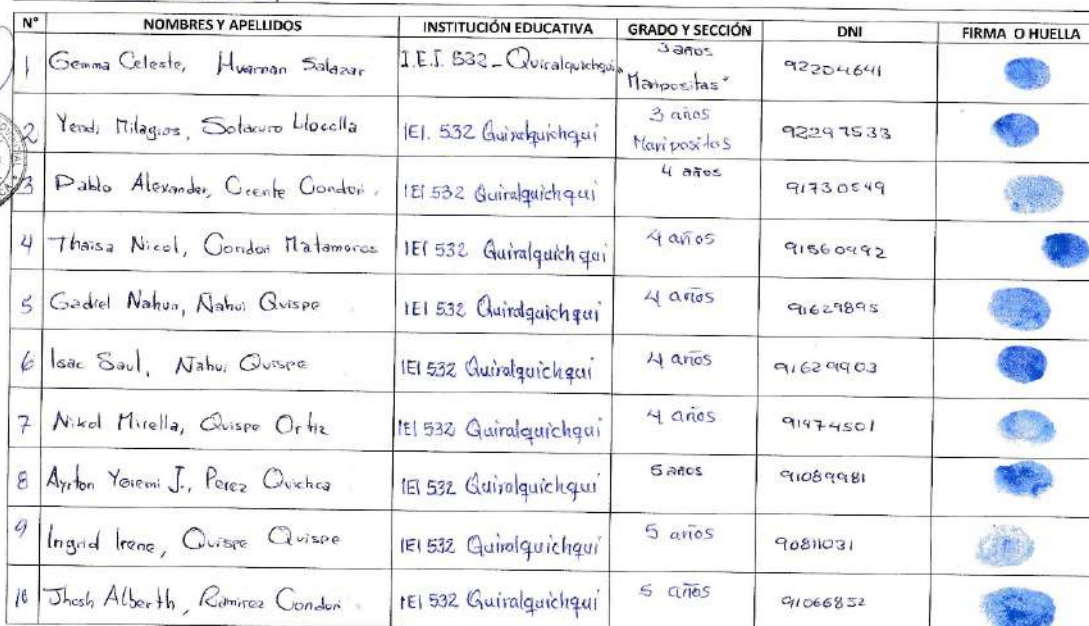 N° NOMBRES Y APELLIDOS INSTITUCIÓN EDUCATIVA GRADO Y SECCIÓN DNI FIRMA O HUELLA
1 Gemma Celeste, Huaman Salazar I.E.I. 532 - Quiralquichqui 3 años "Maripositas" 92204641
2 Yendi Milagros, Solacuro Lloclla IEI. 532 Quiralquichqui 3 años Maripositas 92297533
3 Pablo Alexander, Ccente Condori. IEI 532 Quiralquichqui 4 años 91730549
4 Thaisa Nicol, Condori Matamoros IEI 532 Quiralquichqui 4 años 91560992
5 Gadiel Nahun, Ñahui Quispe IEI 532 Quiralquichqui 4 años 91629895
6 Isac Saul, Nahui Quispe IEI 532 Quiralquichqui 4 años 91629903
7 Nikol Mirella, Quispe Ortiz IEI 532 Quiralquichqui 4 años 91974501
8 Ayrton Yeremi J., Perez Quichca IEI 532 Quiralquichqui 5 años 91089981
9 Ingrid Irene, Quispe Quispe IEI 532 Quiralquichqui 5 años 90811031
10 Jhosh Alberth, Ramirez Condori. IEI 532 Quiralquichqui 5 años 91066852